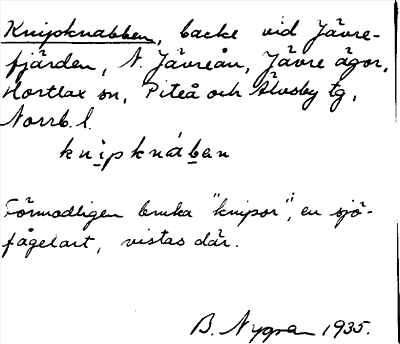 Knipknabben, backe vid Jävre-
fjärden, N. Jävreån, Jävre ägor,
Hortlax sn, Piteå och Älvsby tg,
Norrb. l.
knipknáben
Förmodligen bruka "knipor", en sjö-
fågelart, vistas där.
B. Nygren 1935.